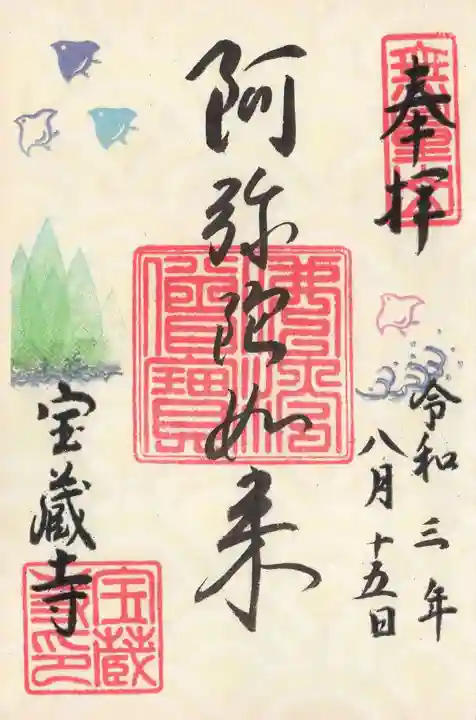 奉拝
令和三年
八月十五日
阿弥陀如来
宝蔵寺
宝蔵
寺印